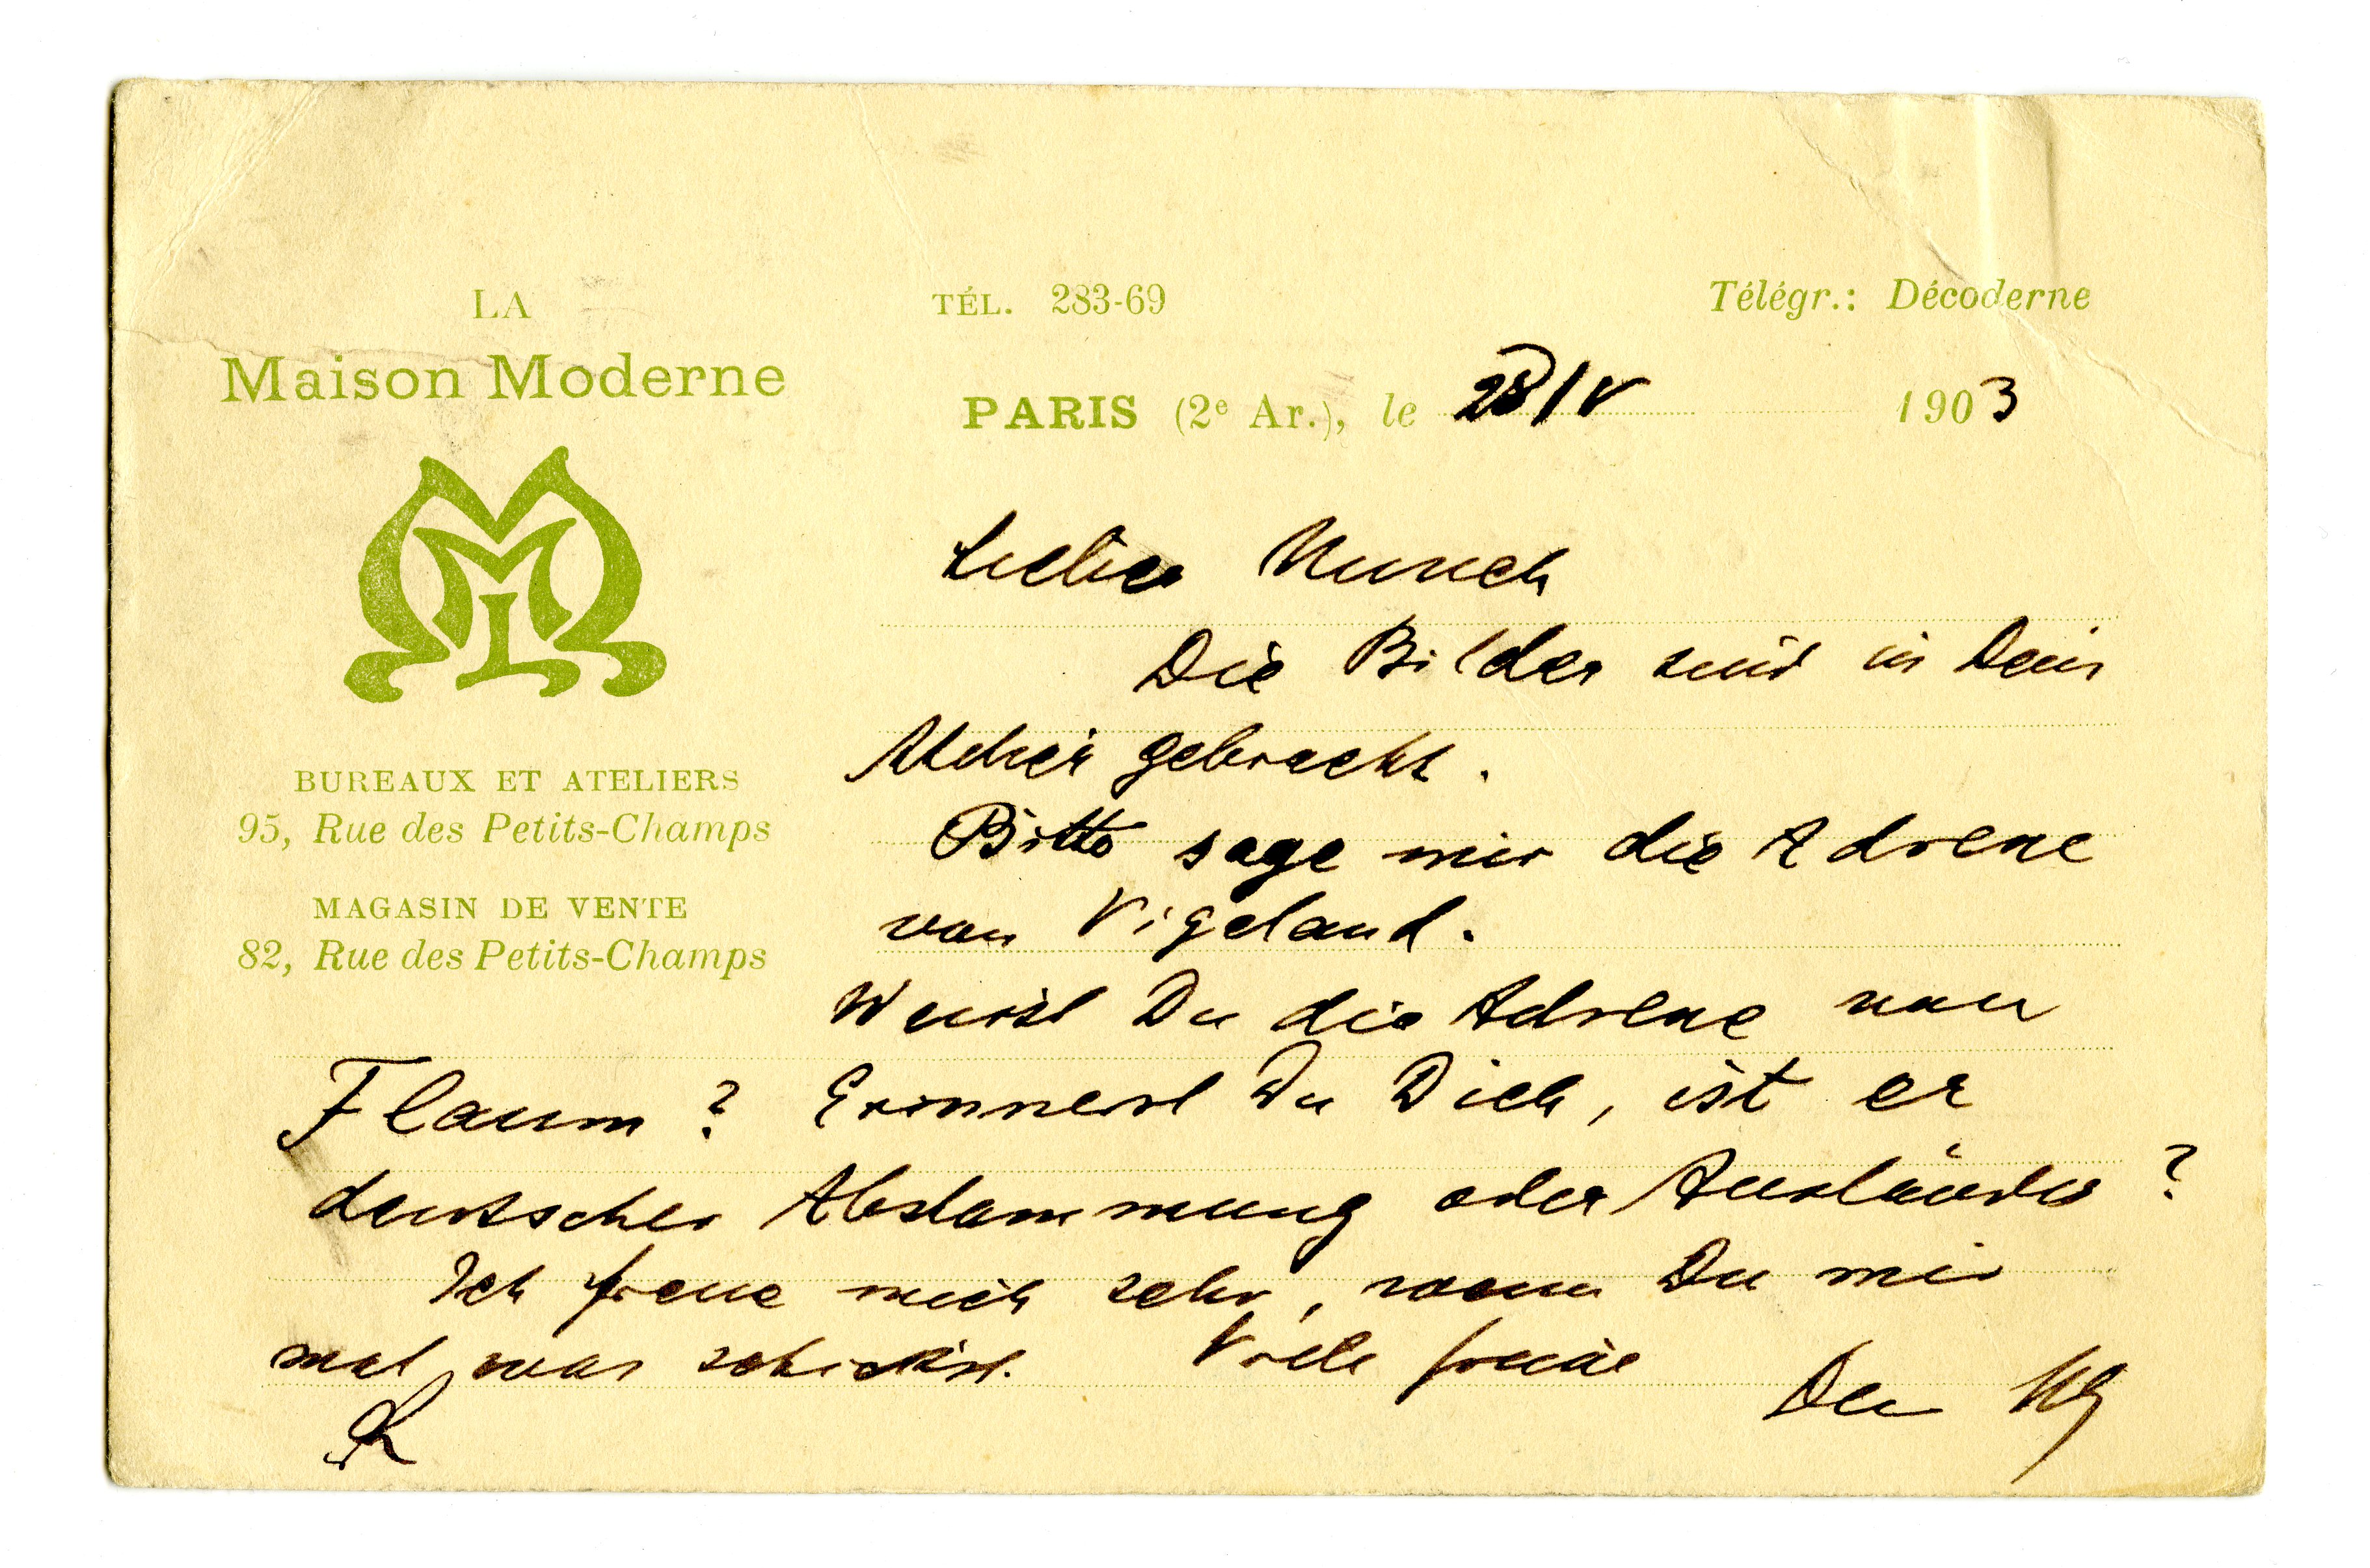 LA
Maison Moderne
BUREAUX ET ATELIERS
95, Rue des Petits-Champs
MAGASIN DE VENTE
82, Rue des Petits-Champs
TÉL. 283-69
Télégr.: Décoderne
PARIS (2e Ar.), le 28/V 1903
Lieber Munch
Die Bilder sind in Dein
Atelier gebracht.
Bitte sage mir die Adresse
von Vigeland.
Weisst Du die Adresse von
Flaum? Erinnerst Du Dich, ist er
deutscher Abstammung oder Ausländer?
Ich freue mich sehr, wenn Du mir
mal was schickst. Viele Grüsse
Dein MG